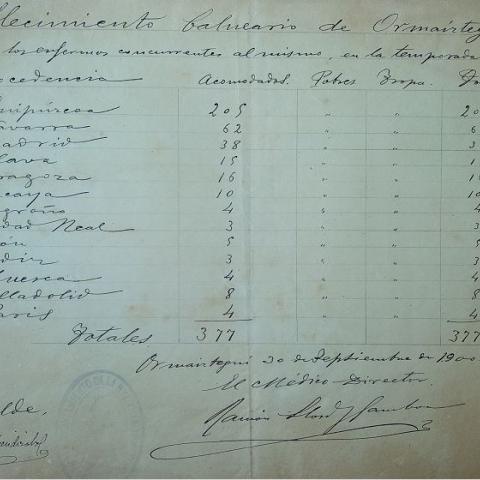 lecimiento balneario de Ormaizteg
los enfermos concurrentes al mismo, en la temporada
ocedencia Acomodados. Pobres Tropa.
uipúzcoa 205 " " 20
avarra 62 " " 6
adrid 38 " " 3
lava 15 " " 1
ragoza 16 " " 1
caya 10 " " 10
groño 4 " " 4
dad Real 3 " " 3
ón 5 " " 5
diz 3 " " 3
uesca 4 " " 4
lladolid 8 " " 8
arís 4 " " 4
Totales 377 377
Ormaiztegui 30 de Septiembre de 1900
El Médico-Director,
lde,
Ramón Llord y Gamboa